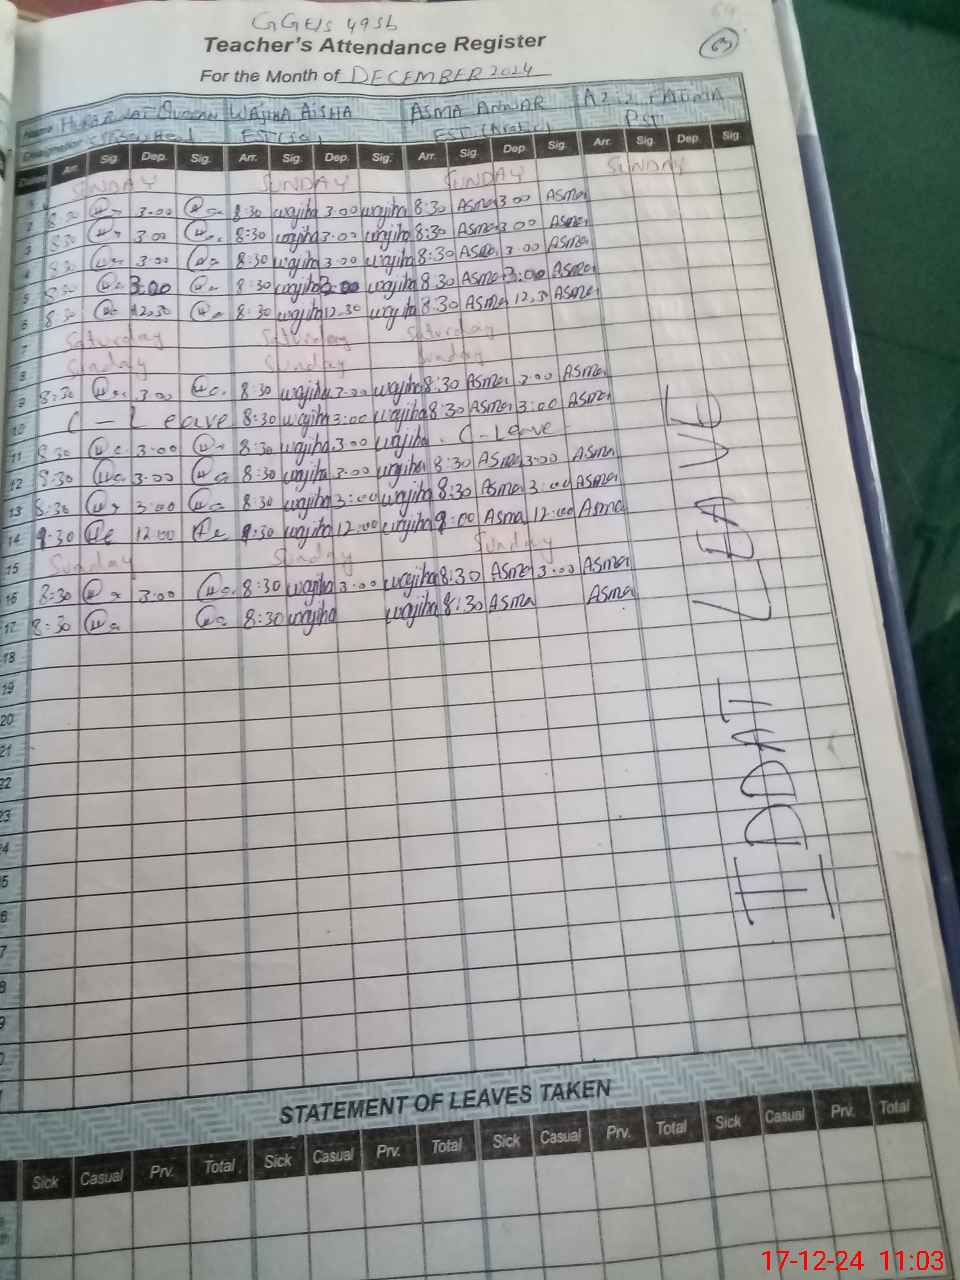 GGE/S 49SB
Teacher's Attendance Register
63
For the Month of DECEMBER 2024
Name WAJIHA AISHA ASMA ANWAR AZIZ FATIMA
Designation EST (Arabic) PST
Dates Arr. Sig. Dep. Sig. Arr. Sig. Dep. Sig. Arr. Sig. Dep. Sig. Arr. Sig. Dep. Sig.
1 SUNDAY SUNDAY SUNDAY SUNDAY
2 8:30 3.00 8:30 wajiha 3.00 wajiha 8:30 Asma 3.00 Asma
3 8:30 3.00 8:30 wajiha 3.00 wajiha 8:30 Asma 3.00 Asma
4 8:30 3.00 8:30 wajiha 3.00 wajiha 8:30 Asma 3.00 Asma
5 8:30 3.00 8:30 wajiha 3.00 wajiha 8:30 Asma 3:00 Asma
6 8:30 12.30 8:30 wajiha 12.30 wajiha 8:30 Asma 12.30 Asma
7 Saturday Saturday Saturday
8 Sunday Sunday Sunday
9 8:30 3.00 8:30 wajiha 3.00 wajiha 8:30 Asma 3.00 Asma
10 C - Leave 8:30 wajiha 3:00 wajiha 8:30 Asma 3:00 Asma
11 8:30 3.00 8:30 wajiha 3.00 wajiha C - Leave
12 8:30 3.00 8:30 wajiha 3.00 wajiha 8:30 Asma 3:00 Asma
13 8:30 3:00 8:30 wajiha 3:00 wajiha 8:30 Asma 3:00 Asma
14 9:30 12:00 9:30 wajiha 12:00 wajiha 9:00 Asma 12:00 Asma
15 Sunday Sunday Sunday
16 8:30 3:00 8:30 wajiha 3.00 wajiha 8:30 Asma 3:00 Asma
17 8:30 8:30 wajiha wajiha 8:30 Asma Asma
IDDAT LEAVE
18
19
20
21
22
23
4
5
6
7
8
9
0
STATEMENT OF LEAVES TAKEN
Sick Casual Prv. Total Sick Casual Prv. Total Sick Casual Prv. Total Sick Casual Prv. Total
17-12-24 11:03